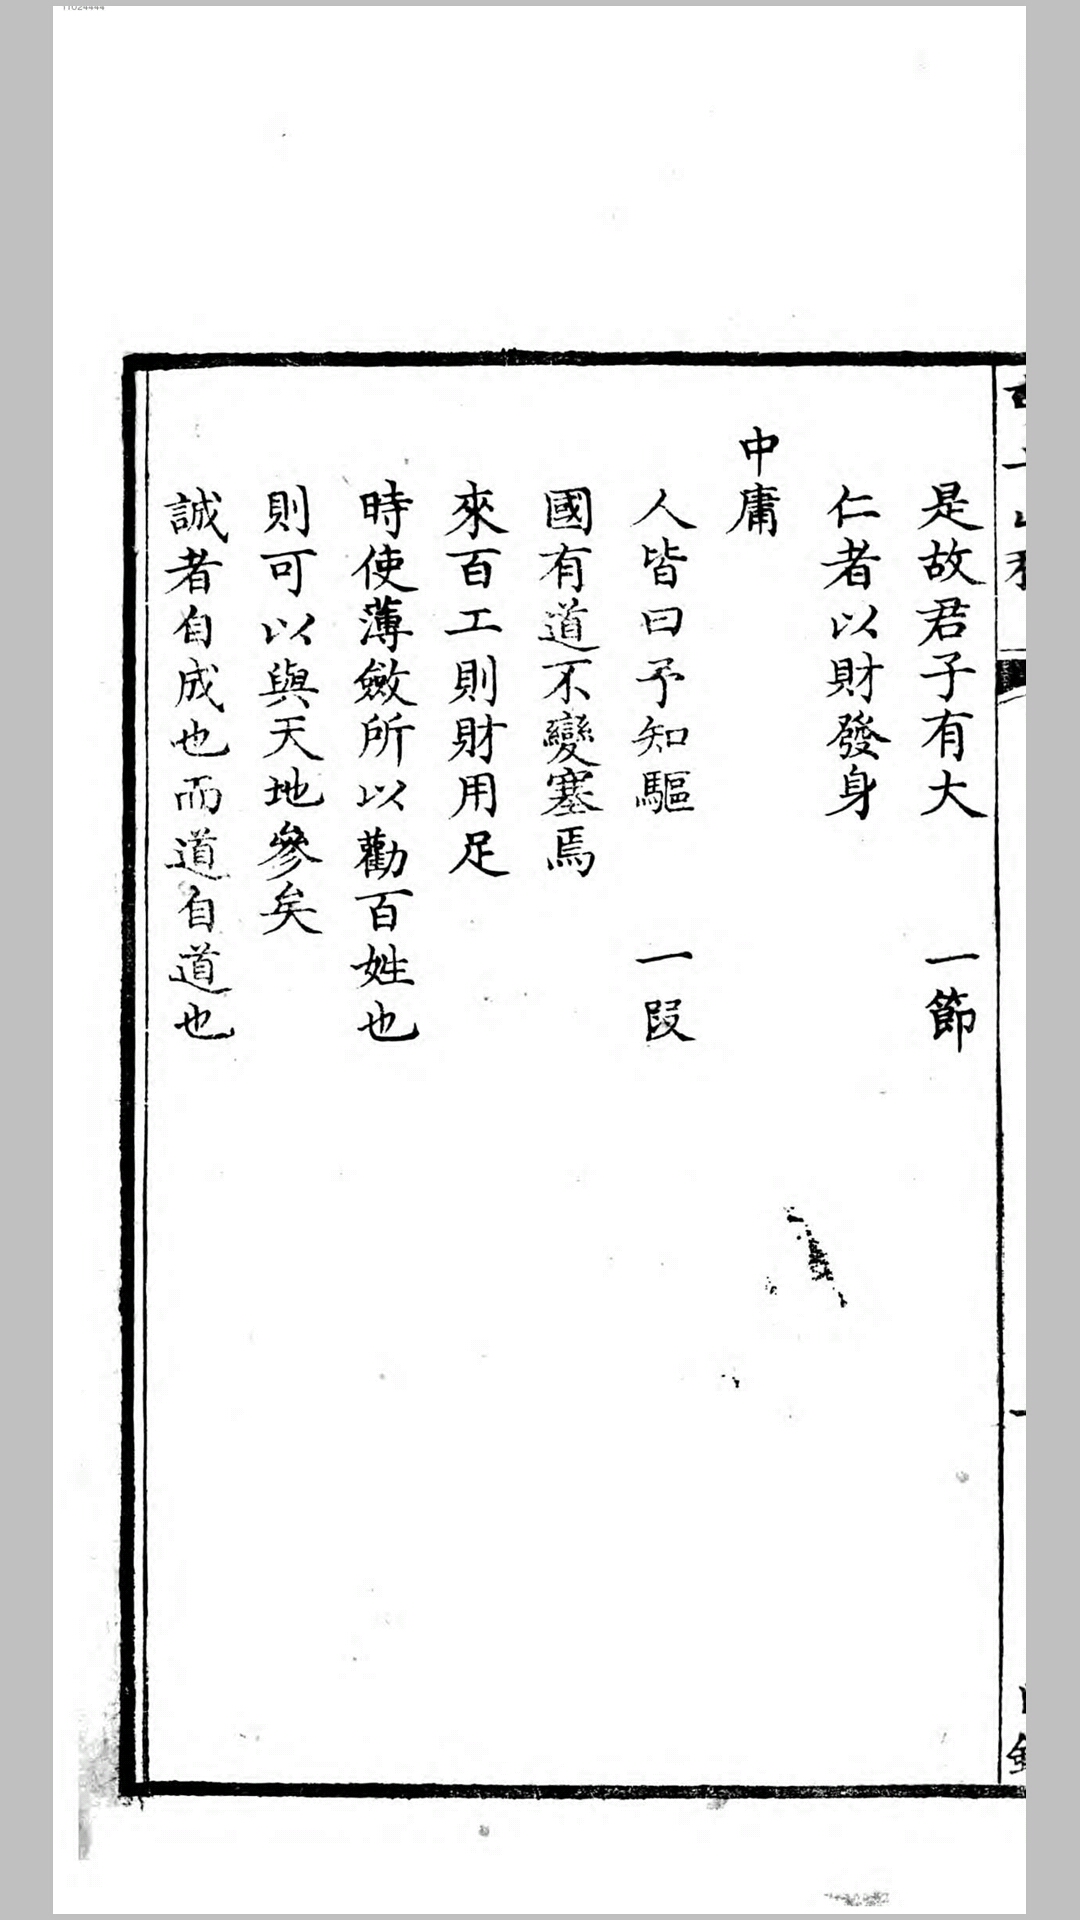 是故君子有大 一節
仁者以財發身
中庸
人皆曰予知驅 一段
國有道不變塞焉
來百工則財用足
時使薄斂所以勸百姓也
則可以與天地參矣
誠者自成也而道自道也